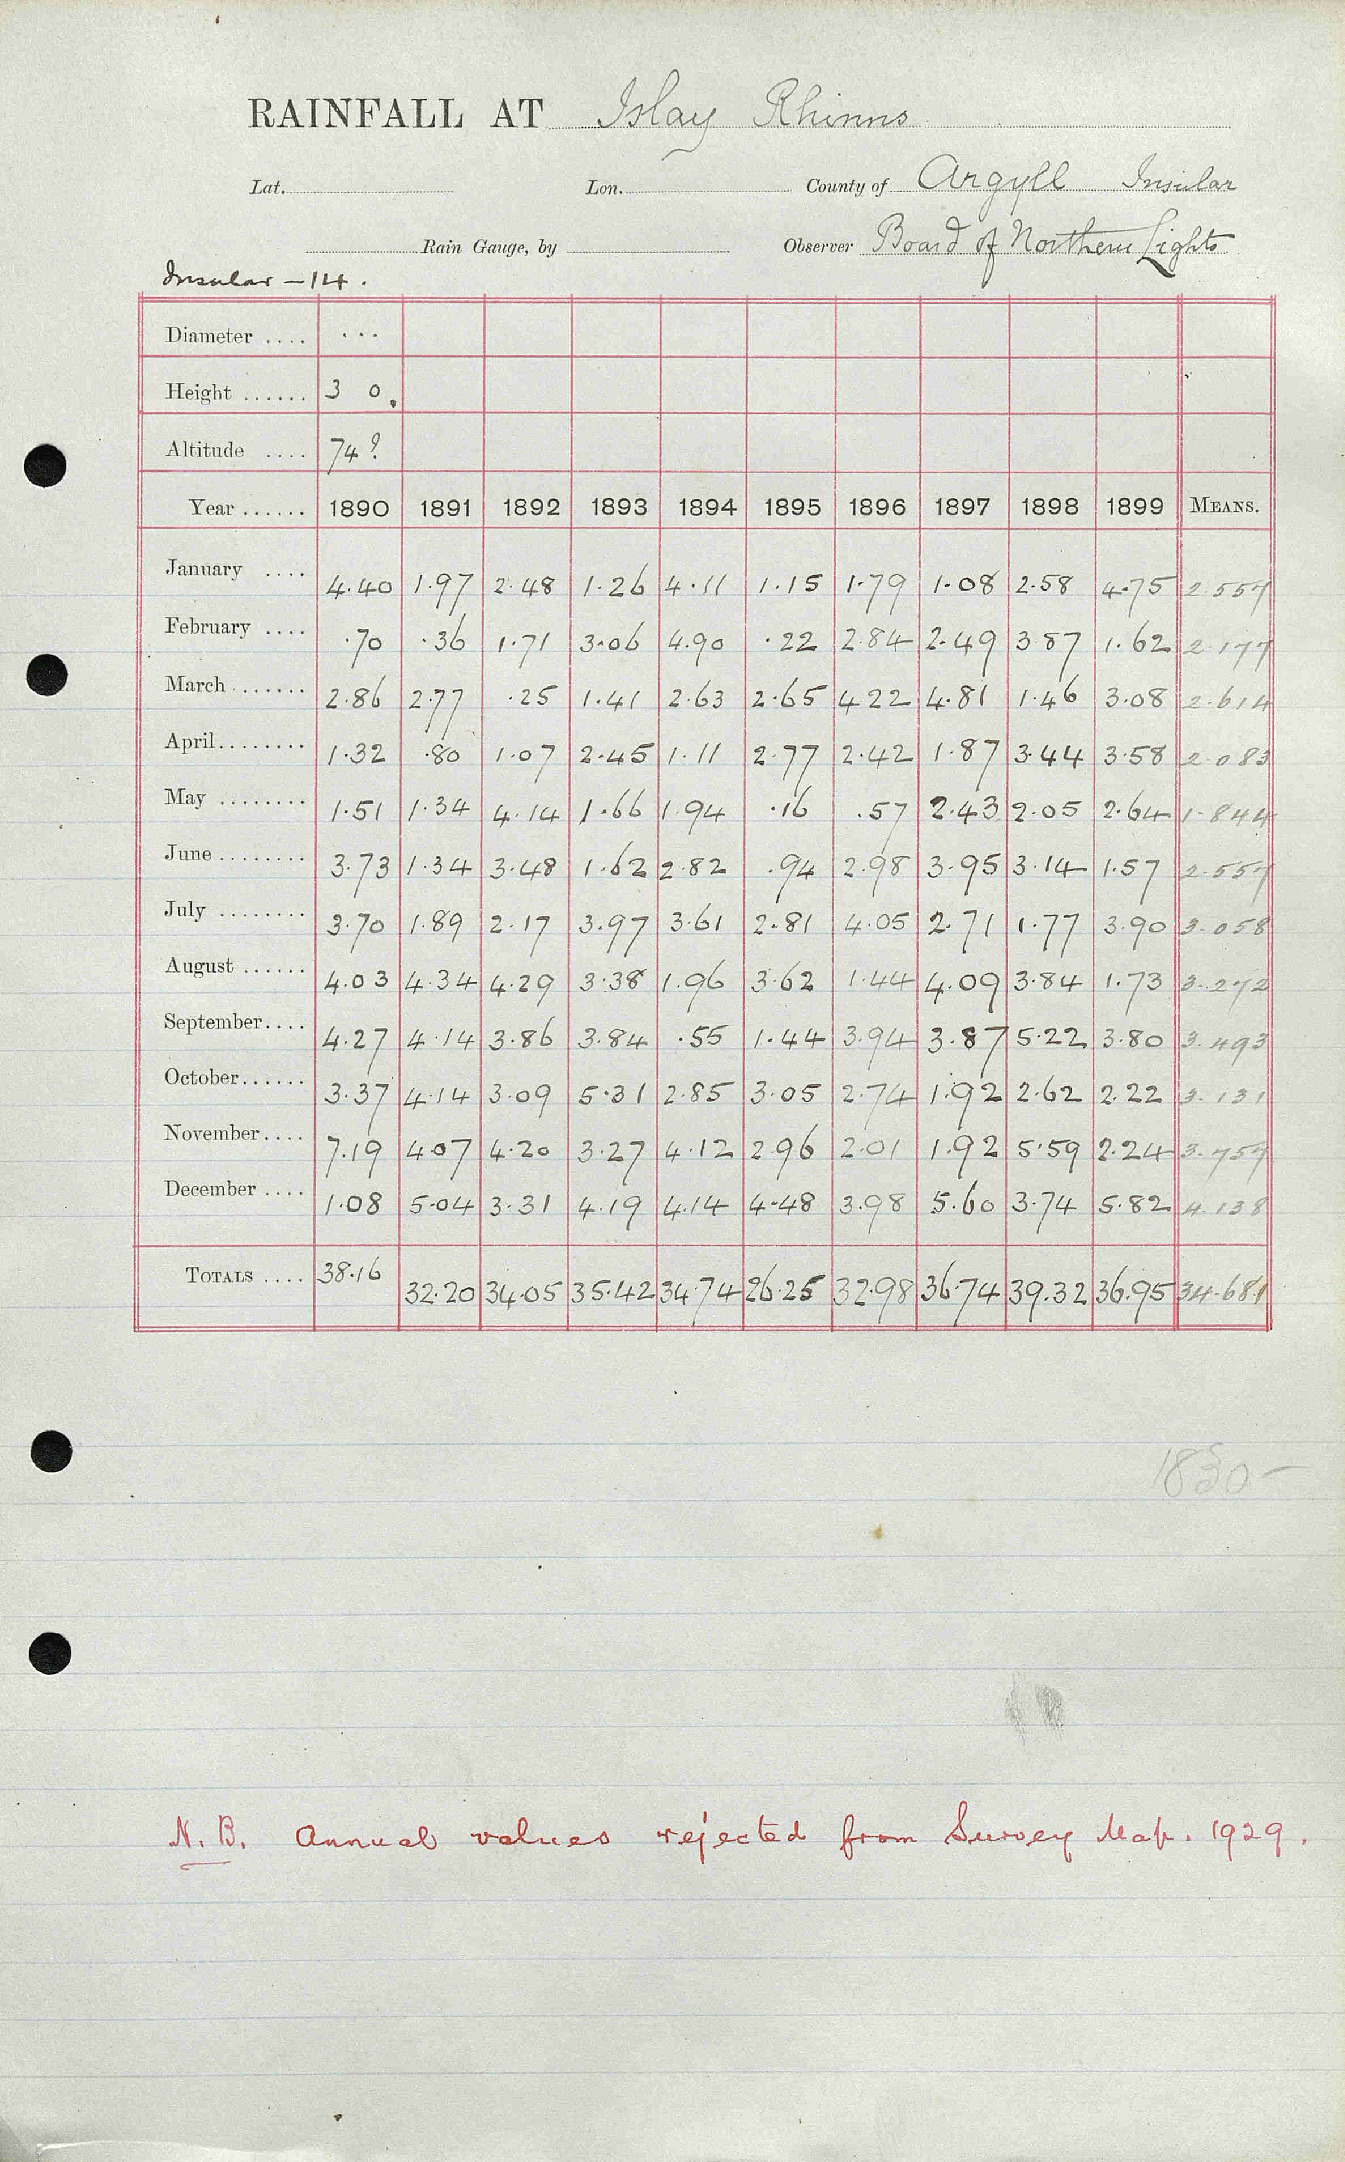 RAINFALL AT Islay Rhinns
Lat. Lon. County of Argyll Insular
Rain Gauge, by Observer Board of Northern Lights
Insular - 14.
Diameter .... ...
Height ...... 3 0
Altitude .... 74?
Year ...... 1890 1891 1892 1893 1894 1895 1896 1897 1898 1899 MEANS.
January .... 4.40 1.97 2.48 1.26 4.11 1.15 1.79 1.08 2.58 4.75 2.557
February .... .70 .36 1.71 3.06 4.90 .22 2.84 2.49 3.87 1.62 2.177
March ....... 2.86 2.77 .25 1.41 2.63 2.65 4.22 4.81 1.46 3.08 2.614
April ........ 1.32 .80 1.07 2.45 1.11 2.77 2.42 1.87 3.44 3.58 2.083
May ........ 1.51 1.34 4.14 1.66 1.94 .16 .57 2.43 2.05 2.64 1.844
June ........ 3.73 1.34 3.48 1.62 2.82 .94 2.98 3.95 3.14 1.57 2.557
July ........ 3.70 1.89 2.17 3.97 3.61 2.81 4.05 2.71 1.77 3.90 3.058
August ...... 4.03 4.34 4.29 3.38 1.96 3.62 1.44 4.09 3.84 1.73 3.272
September.... 4.27 4.14 3.86 3.84 .55 1.44 3.94 3.87 5.22 3.80 3.493
October...... 3.37 4.14 3.09 5.31 2.85 3.05 2.74 1.92 2.62 2.22 3.131
November.... 7.19 4.07 4.20 3.27 4.12 2.96 2.01 1.92 5.59 2.24 3.757
December .... 1.08 5.04 3.31 4.19 4.14 4.48 3.98 5.60 3.74 5.82 4.138
TOTALS .... 38.16 32.20 34.05 35.42 34.74 26.25 32.98 36.74 39.32 36.95 34.681
N.B. Annual values rejected from Survey Map. 1929.